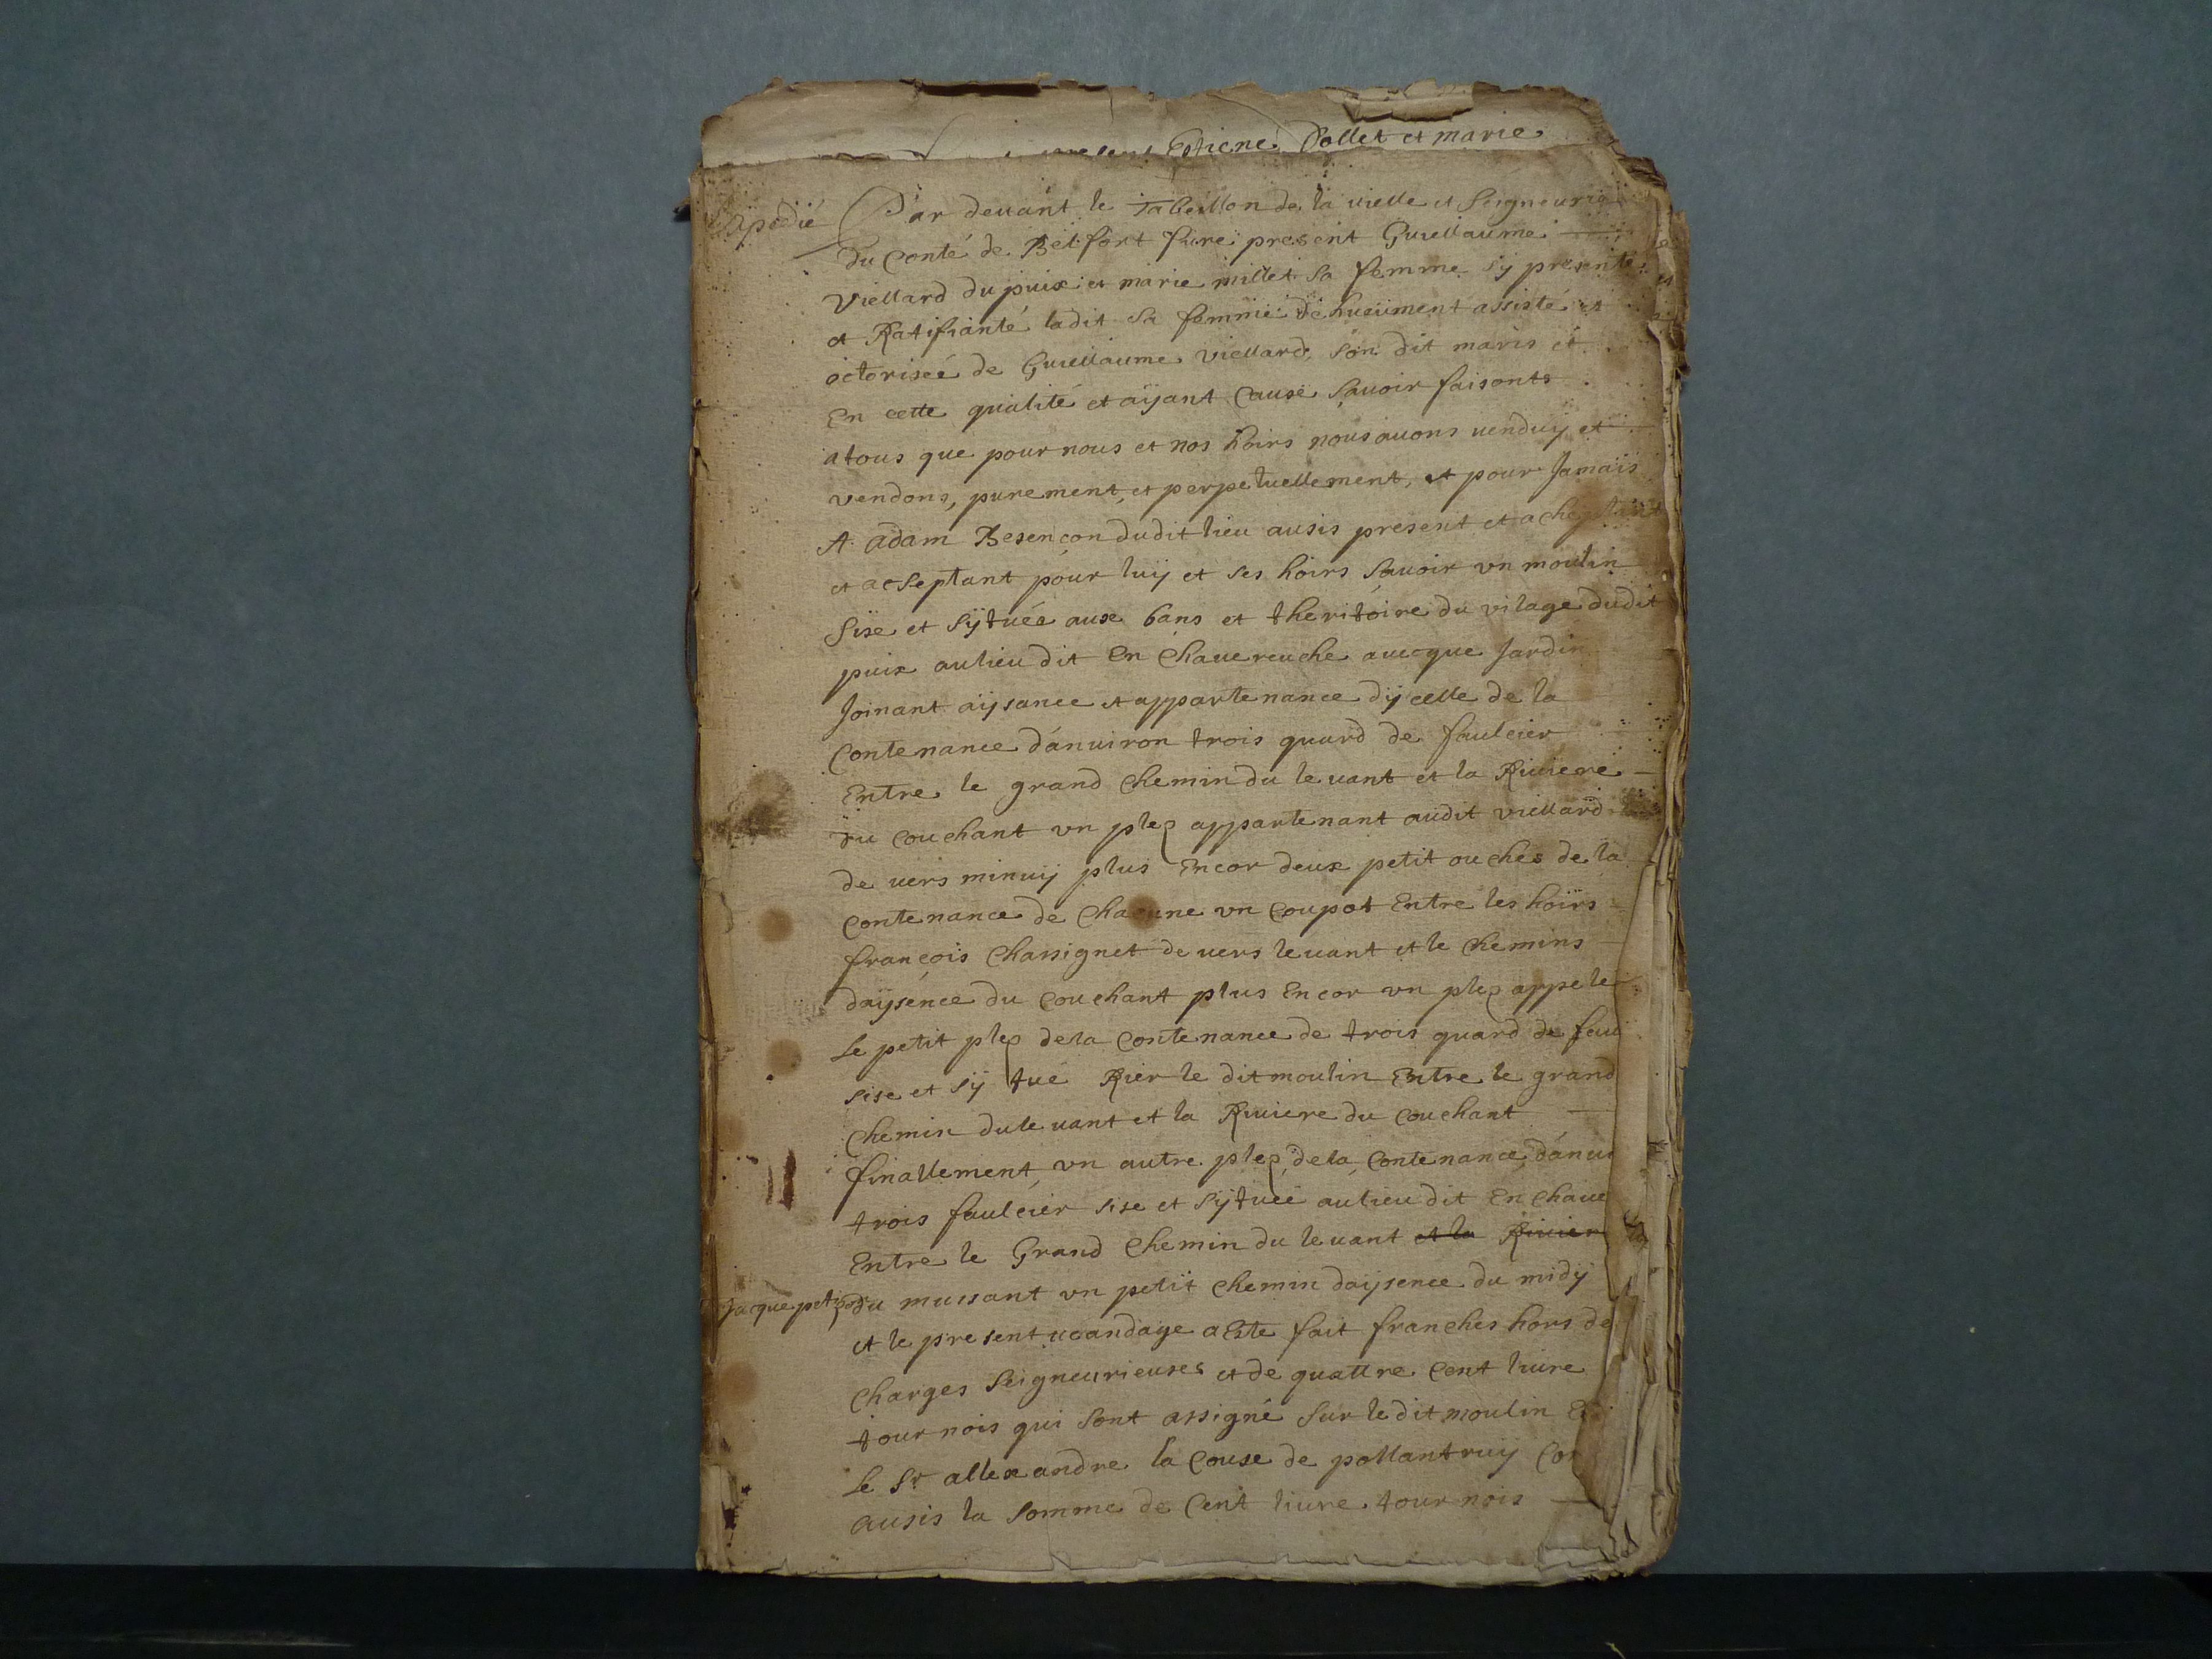 Estiene Pollet et marie
Expedié
Par deuant le Tabeillon de la vielle et Seigneurie
du Conté de Belfort fure present Guiellaume
Viellard du puix et marie millet sa femme sy presente
et Ratifiante ladit sa femme dehueument assisté et
octorisée de Guiellaume viellard son dit maris et
En cette qualité et aÿant Cause Sauoir faisonts
atous que pour nous et nos hoirs nous auons venduÿ et
vendons, purement et perpetuellement, et pour Jamais
A adam Besencon dudit lieu ausis present et acheptant
et acseptant pour luÿ et ses hoirs Sauoir vn moulin
Sise et Sÿtuée aux bans et theritoire du vilage dudit
puix aulieu dit En Chauereuche auecque Jardin
Joinant aÿsance et appartenance dÿcelle de la
Contenance d'anuiron trois quard de faulcier
Entre le grand Chemin du leuant et la Riuiere
du Couchant vn plep appartenant audit viellard
de uers minuÿ plus Encor deux petit ouches de la
Contenance de Chacune vn Coupot Entre les hoirs
françois Chassignet de uers leuant et le Chemins
daÿsence du Couchant plus Encor vn plep appele
Le petit plep dela Contenance de trois quard de faul
sise et sÿtué Rier le dit moulin Entre le grand
Chemin duleuant et la Riuiere du Couchant
finallement, vn autre plep dela Contenance d'anui
trois faulcier sise et sÿtuée aulieu dit En Chaue
Entre le Grand Chemin du leuant et la Riuier
Jacque petit
du mussant vn petit Chemin daÿsence du midÿ
et le present ueandage a Este fait franches hors de
Charges Seigneurieuses et de quattre Cent liure
tournois qui Sont assigné Sur le dit moulin
Le Sr allexandre la Couse de pollantruÿ
ausis la Somme de Cent liure tournois